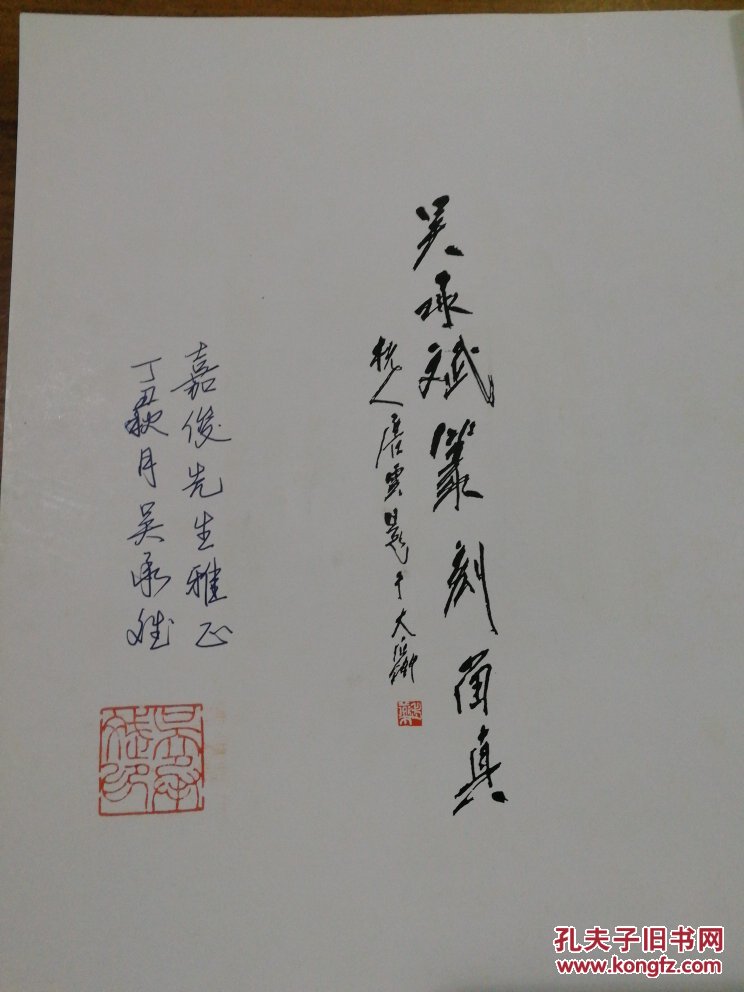 吴承斌篆刻留真
杭人唐雲题于大石
嘉俊先生雅正
丁丑秋月吴承斌
吴承斌印
孔夫子旧书网
www.kongfz.com